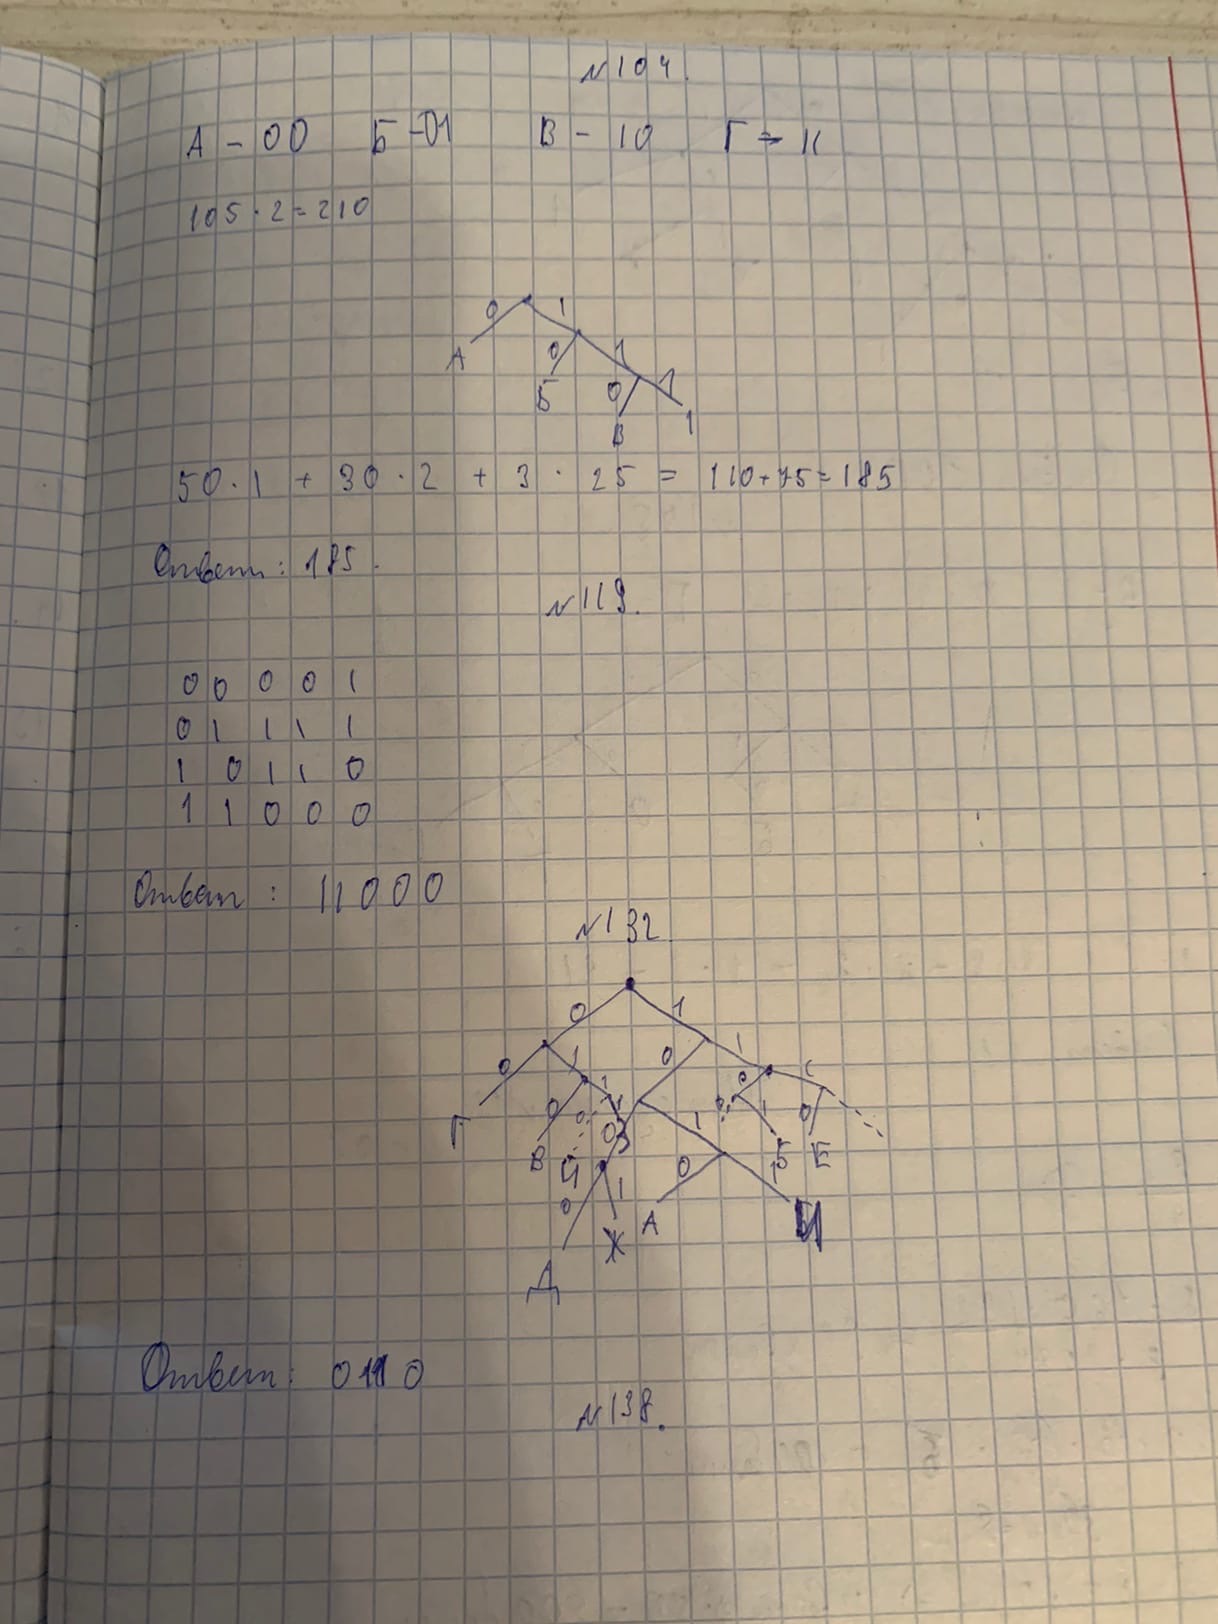 №104.
А – 00 Б – 01 В – 10 Г – 11
105 · 2 = 210
0 1
А 0 1
Б 0 1
В
50 · 1 + 30 · 2 + 3 · 25 = 110 + 75 = 185
Ответ: 185.
№119.
0 0 0 0 1
0 1 1 1 1
1 0 1 1 0
1 1 0 0 0
Ответ: 11000
№132
0 1
0 1 0 1
Г 0 1 0 1 0 1
В 0 1 0
0 1 0 Б Е
Д Ж А И
Ответ: 0110
№138.